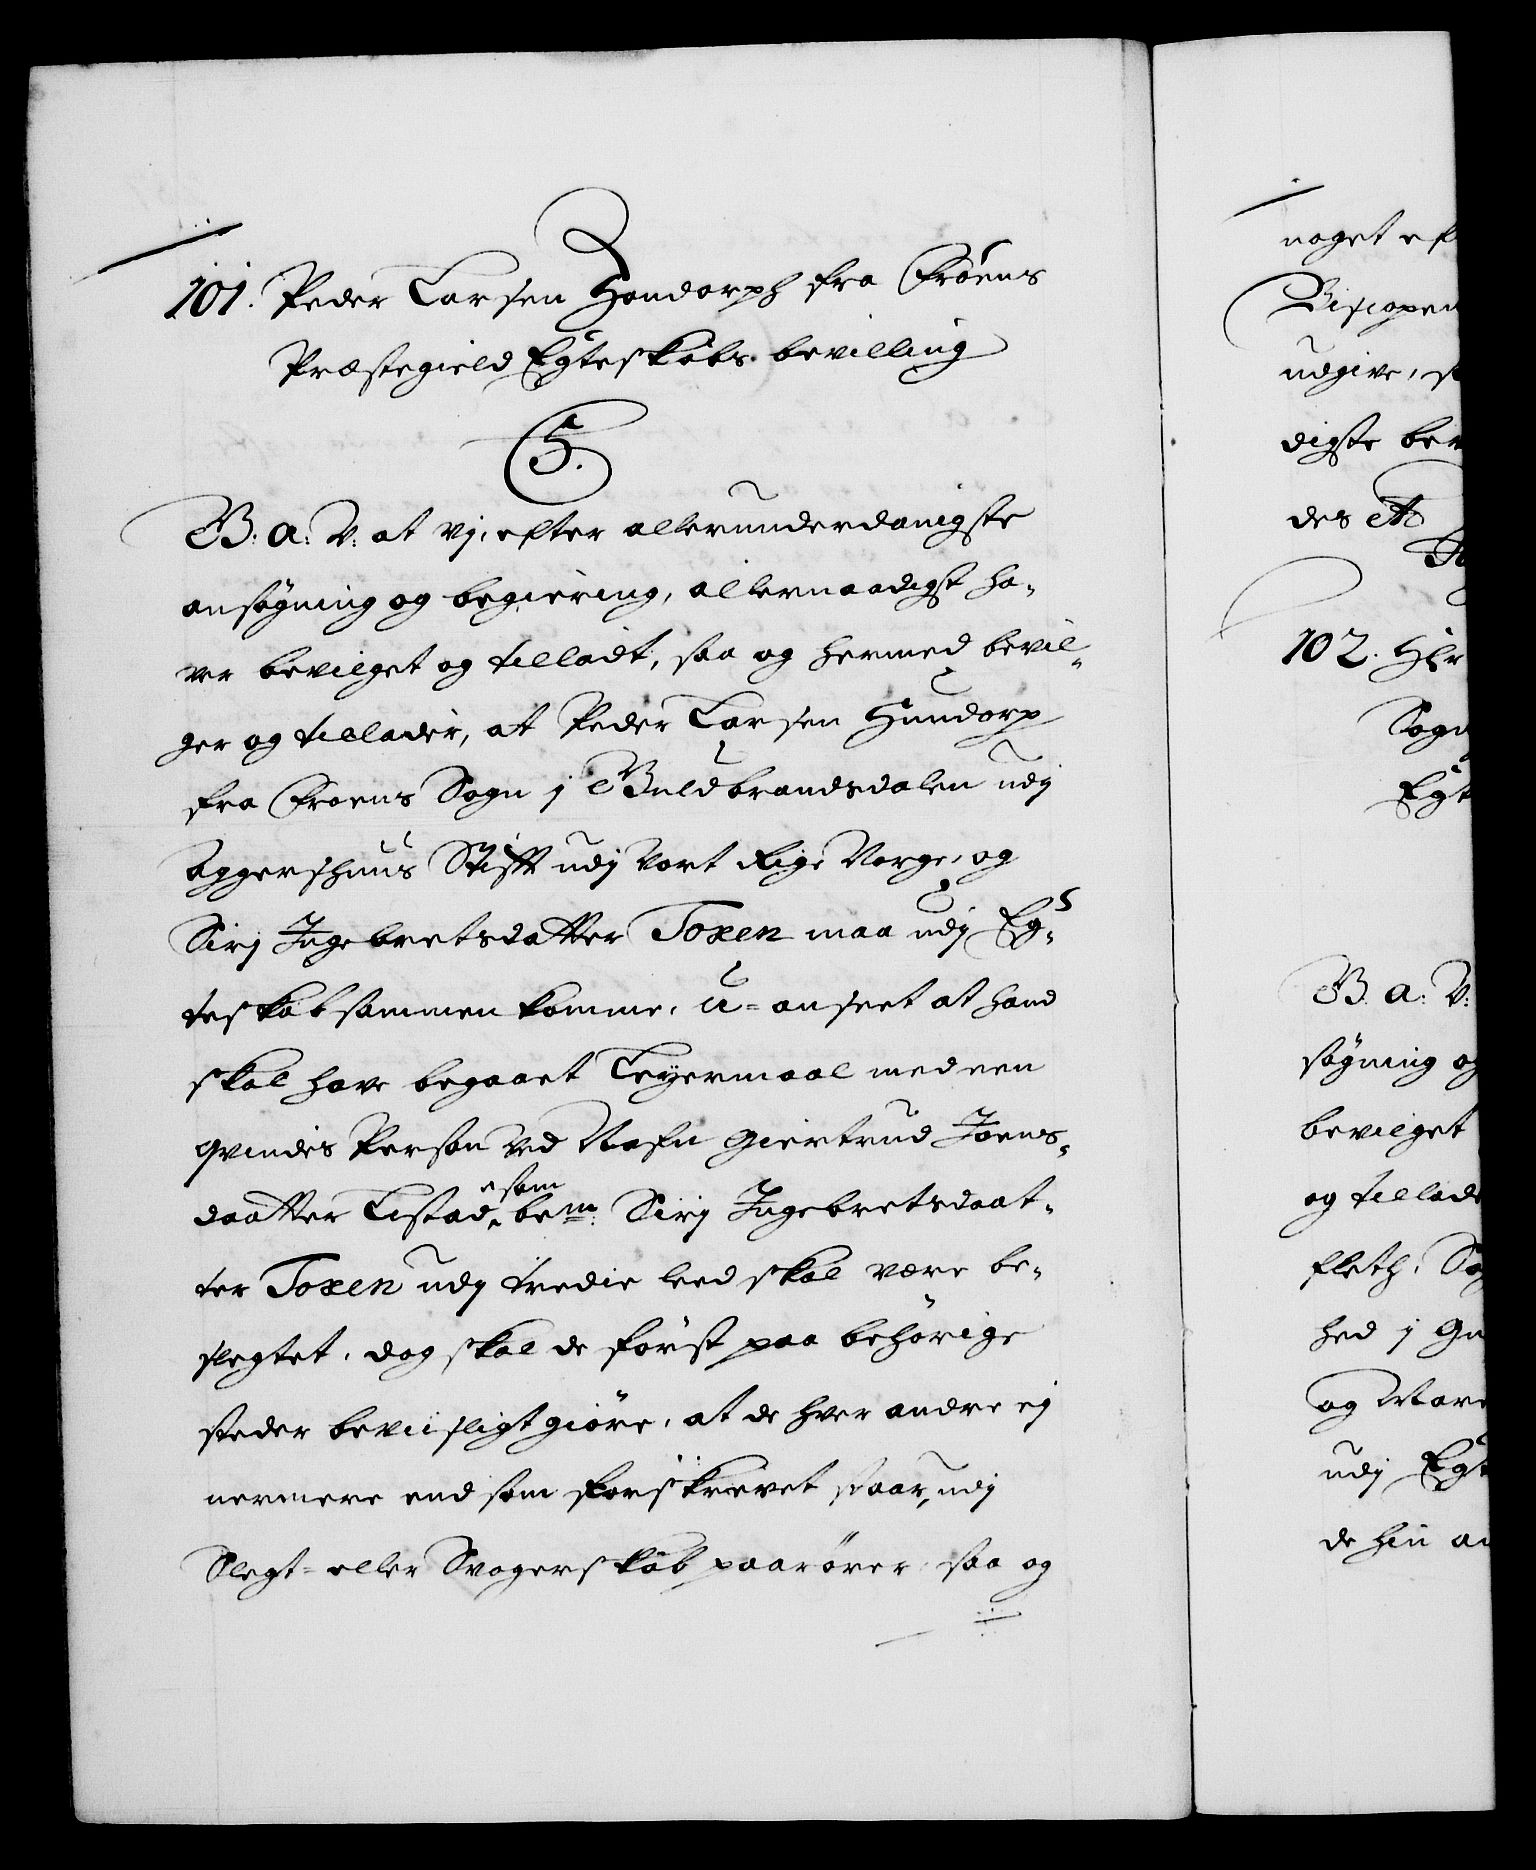 101. Peder Larsen Hondorph fra Frøens
Præstegield Egteskabs bevilling
5.
B. a: V: at vj, efter allerunderdanigste
ansøgning og begiering, allernaadigst ha-
ver bevilget og tilladt, saa og hermed bevil-
ger og tillader, at Peder Larsen Hundorp
fra Froens Sogn j Guldbrandsdalen udj
Aggershuus Stift udj Vort Rige Norge, og
Sirj Ingebretsdatter Toxen maa udj Eg-
teskab sammen komme, u-anseet at hand
skal have begaaet Leyermaal med een
qvindes Person ved Nafn Giertrud Joens-
daatter Listad, som bem: Sirj Ingebretsdaat-
ter Toxen udj tredie leed skal være be-
slegtet, dog skal de først paa behørige
steder beviisligt giøre, at de hver andre ej
nermere end som forskrevet staar, udj
Slegt- eller Svogerskab paarører, saa og
noget
udgive,
digste
des
102.
Sogn
B. a: V:
søgning og
bevilget
og
fleth,
hed j
og
udj
de hin